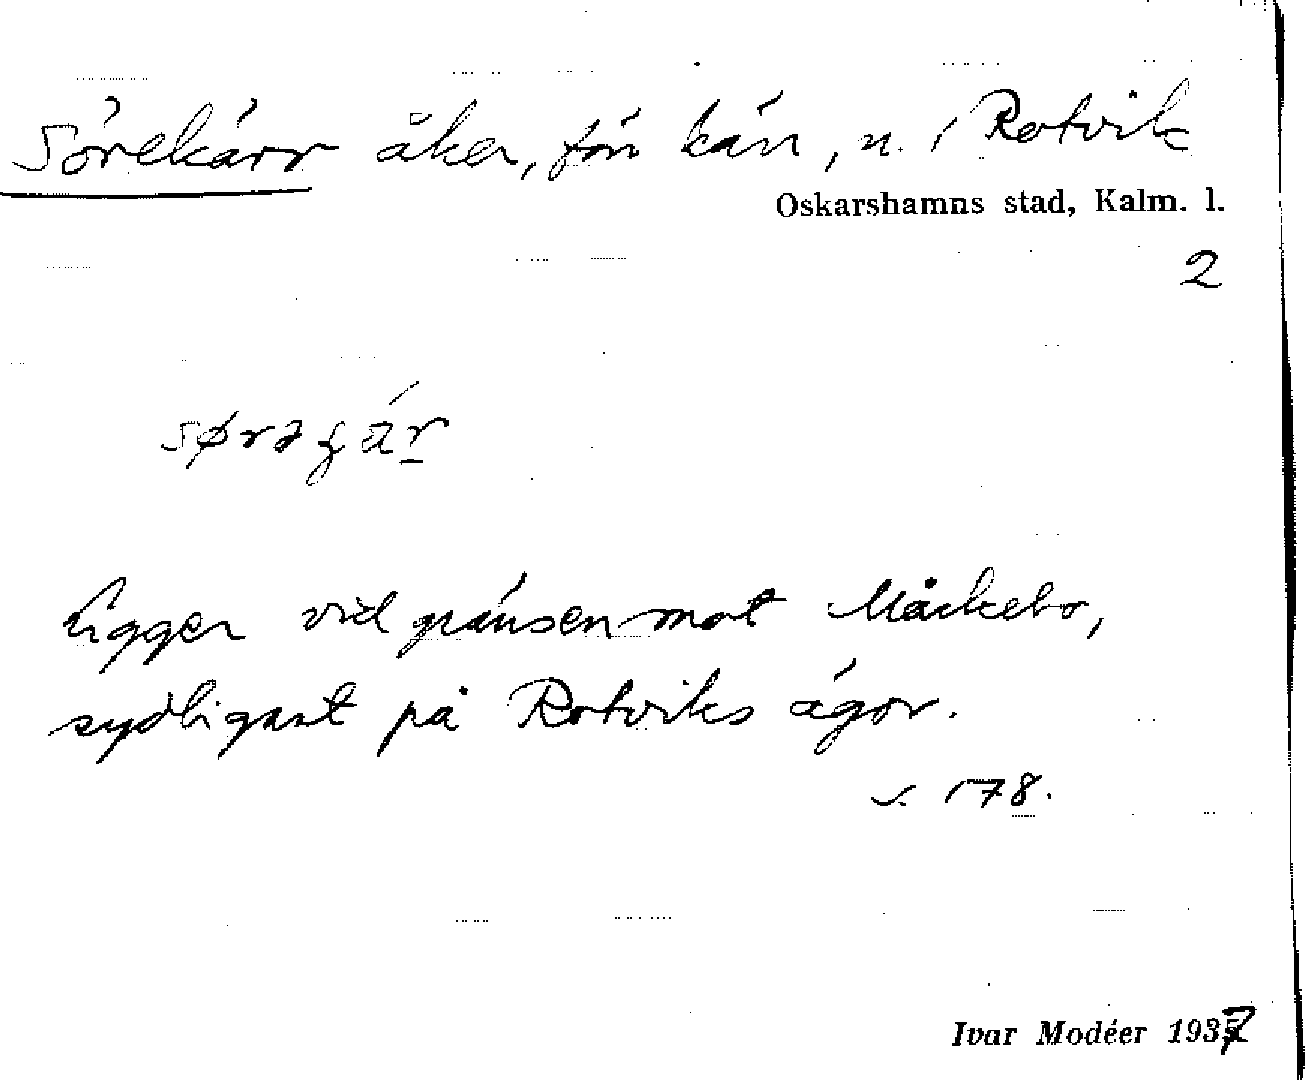 Sörekärr åker, förr kärr, n. i Rotvik
Oskarshamns stad, Kalm. l.
2
sørəʒär
Ligger vid gränsen mot Måckebo,
sydligast på Rotviks ägor.
s. 178.
Ivar Modéer 1937